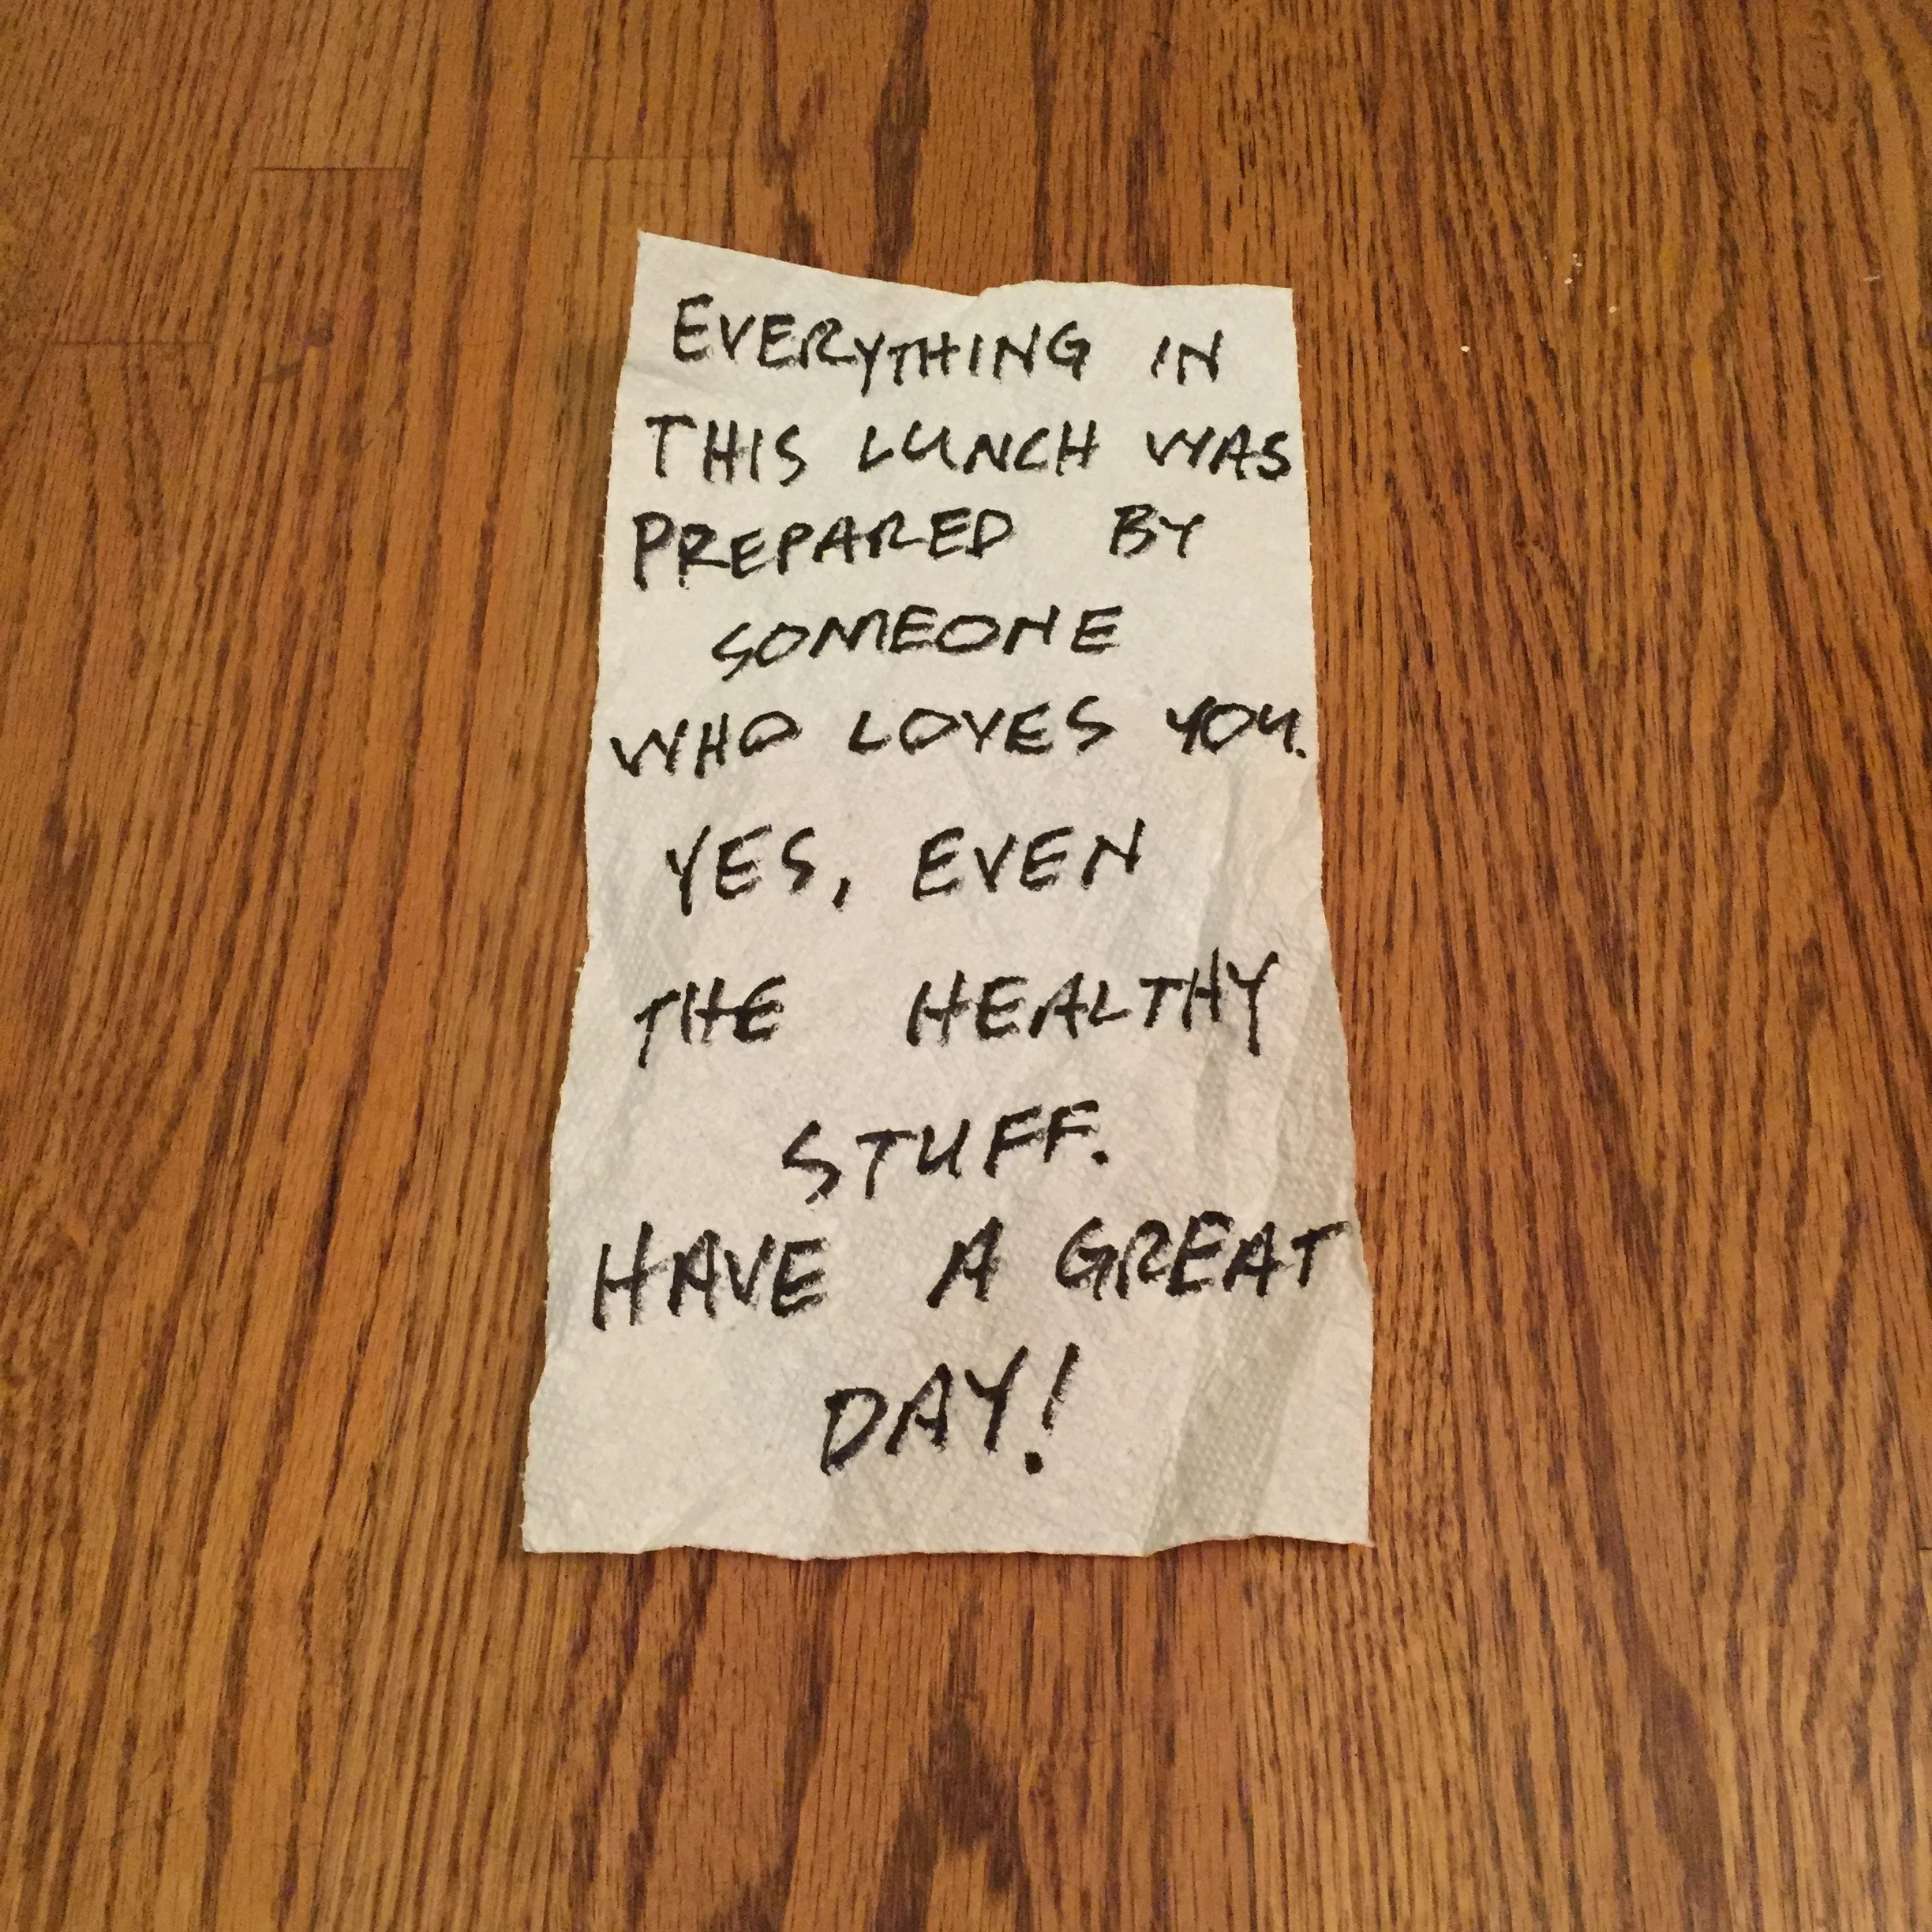 EVERYTHING IN
THIS LUNCH WAS
PREPARED BY
SOMEONE
WHO LOVES YOU.
YES, EVEN
THE HEALTHY
STUFF.
HAVE A GREAT
DAY!